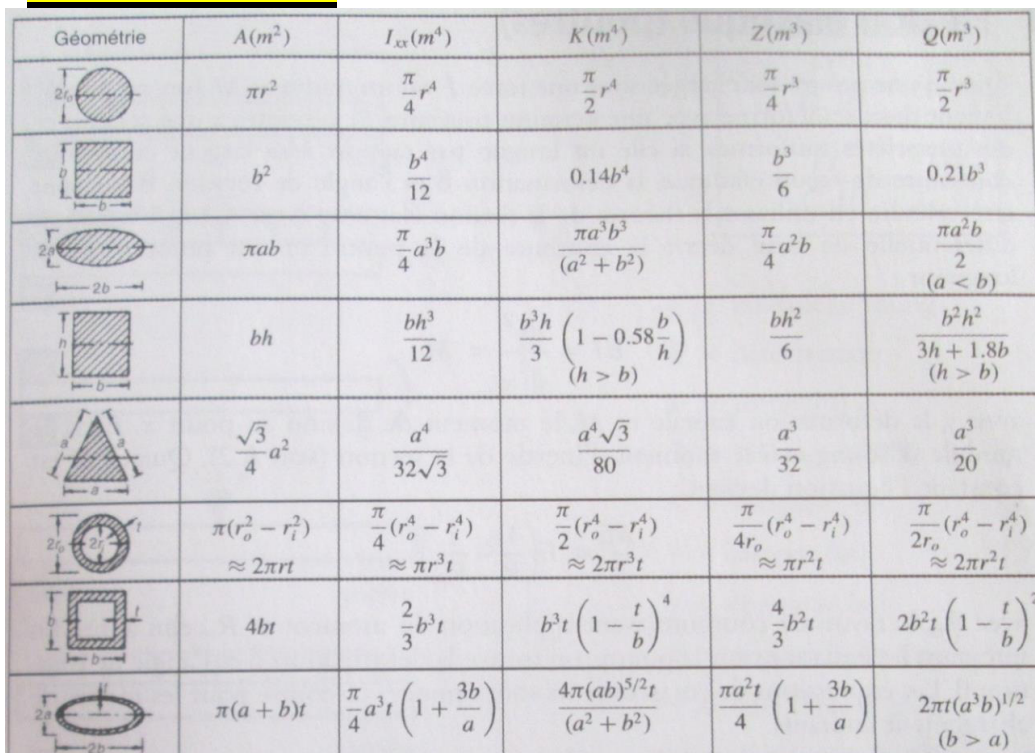 Géométrie A(m²) I_xx(m⁴) K(m⁴) Z(m³) Q(m³)
2r_o πr² π/4 r⁴ π/2 r⁴ π/4 r³ π/2 r³
b b b² b⁴/12 0.14b⁴ b³/6 0.21b³
2a 2b πab π/4 a³b πa³b³/(a² + b²) π/4 a²b πa²b/2 (a < b)
h b bh bh³/12 b³h/3 (1 − 0.58 b/h) (h > b) bh²/6 b²h²/(3h + 1.8b) (h > b)
a a a √3/4 a² a⁴/32√3 a⁴√3/80 a³/32 a³/20
2r_o 2r_i t π(r_o² − r_i²) ≈ 2πrt π/4 (r_o⁴ − r_i⁴) ≈ πr³t π/2 (r_o⁴ − r_i⁴) ≈ 2πr³t π/4r_o (r_o⁴ − r_i⁴) ≈ πr²t π/2r_o (r_o⁴ − r_i⁴) ≈ 2πr²t
b b t 4bt 2/3 b³t b³t (1 − t/b)⁴ 4/3 b²t 2b²t (1 − t/b)²
2a 2b t π(a + b)t π/4 a³t (1 + 3b/a) 4π(ab)^5/2 t/(a² + b²) πa²t/4 (1 + 3b/a) 2πt(a³b)^1/2 (b > a)